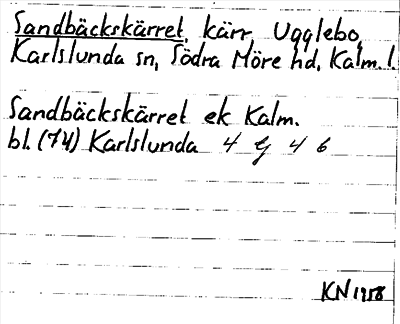 Sandbäckskärret, kärr, Ugglebo,
Karlslunda sn, Södra Möre hd, Kalm. l.
Sandbäckskärret ek Kalm.
bl. (74) Karlslunda 4 G 4 b
KN 1958